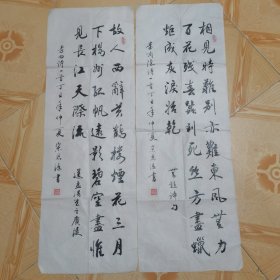 相見時難別亦難東風無力
百花殘春蠶到死絲方盡蠟
炬成灰淚始乾
無題詩
李商隱詩一首丁酉年仲夏宋書
故人西辭黃鶴樓煙花三月
下揚州孤帆遠影碧空盡惟
見長江天際流
送孟浩然之廣陵
李白詩一首丁酉年仲夏宋書